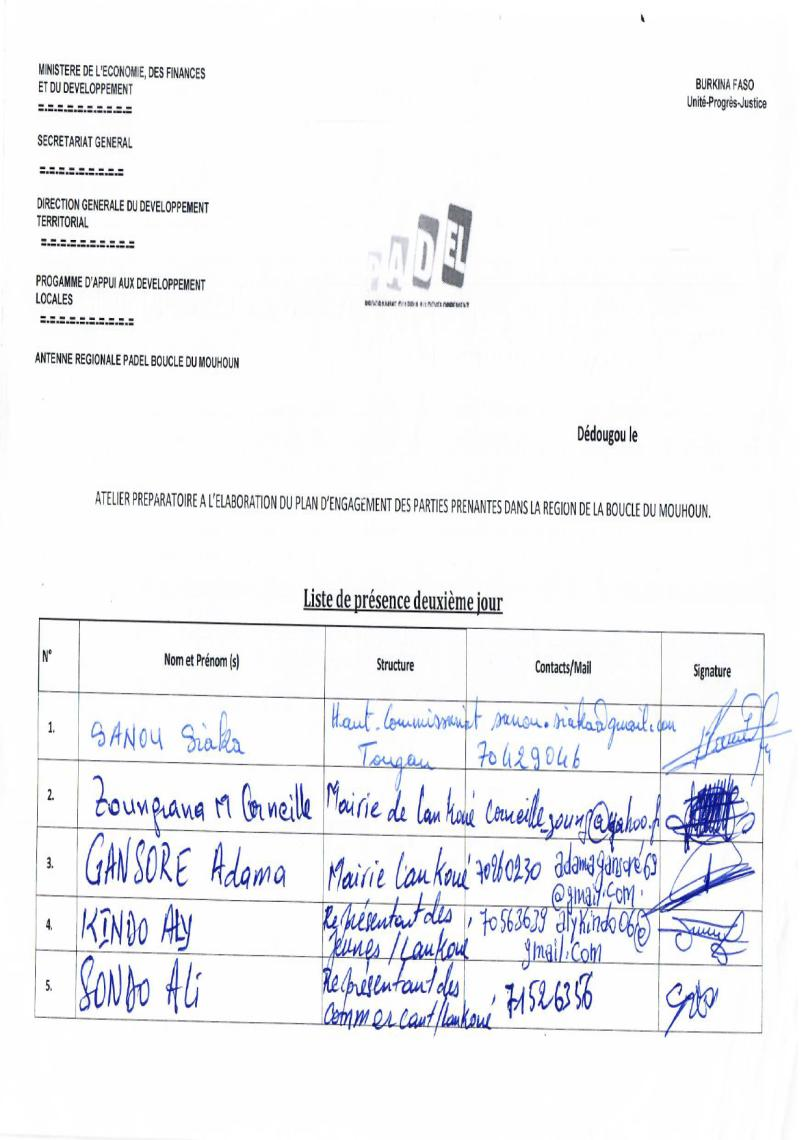 MINISTERE DE L'ECONOMIE, DES FINANCES
ET DU DEVELOPPEMENT
=-=-=-=-=-=-=-=-=-=
SECRETARIAT GENERAL
=-=-=-=-=-=-=-=-=
DIRECTION GENERALE DU DEVELOPPEMENT
TERRITORIAL
=-=-=-=-=-=-=-=-=-=
PROGAMME D'APPUI AUX DEVELOPPEMENT
LOCALES
=-=-=-=-=-=-=-=-=-=
ANTENNE REGIONALE PADEL BOUCLE DU MOUHOUN
BURKINA FASO
Unité-Progrès-Justice
PADEL
Dédougou le
ATELIER PREPARATOIRE A L'ELABORATION DU PLAN D'ENGAGEMENT DES PARTIES PRENANTES DANS LA REGION DE LA BOUCLE DU MOUHOUN.
Liste de présence deuxième jour
N° Nom et Prénom (s) Structure Contacts/Mail Signature
1. SANOU Siaka Haut-Commissariat Tougan sanou.siaka@gmail.com 70429046
2. Zoungrana M Corneille Mairie de Lankoué Corneille_zoung@yahoo.f
3. GANSORE Adama Mairie Lankoué 70260230 adamagansoré69
@gmail.com.
4. KINDO ALY Représentant des
jeunes / Lankoué 70563639 alykindo06@
gmail.com
5. SONDO Ali Représentant des
commercant/Lankoué 71526356